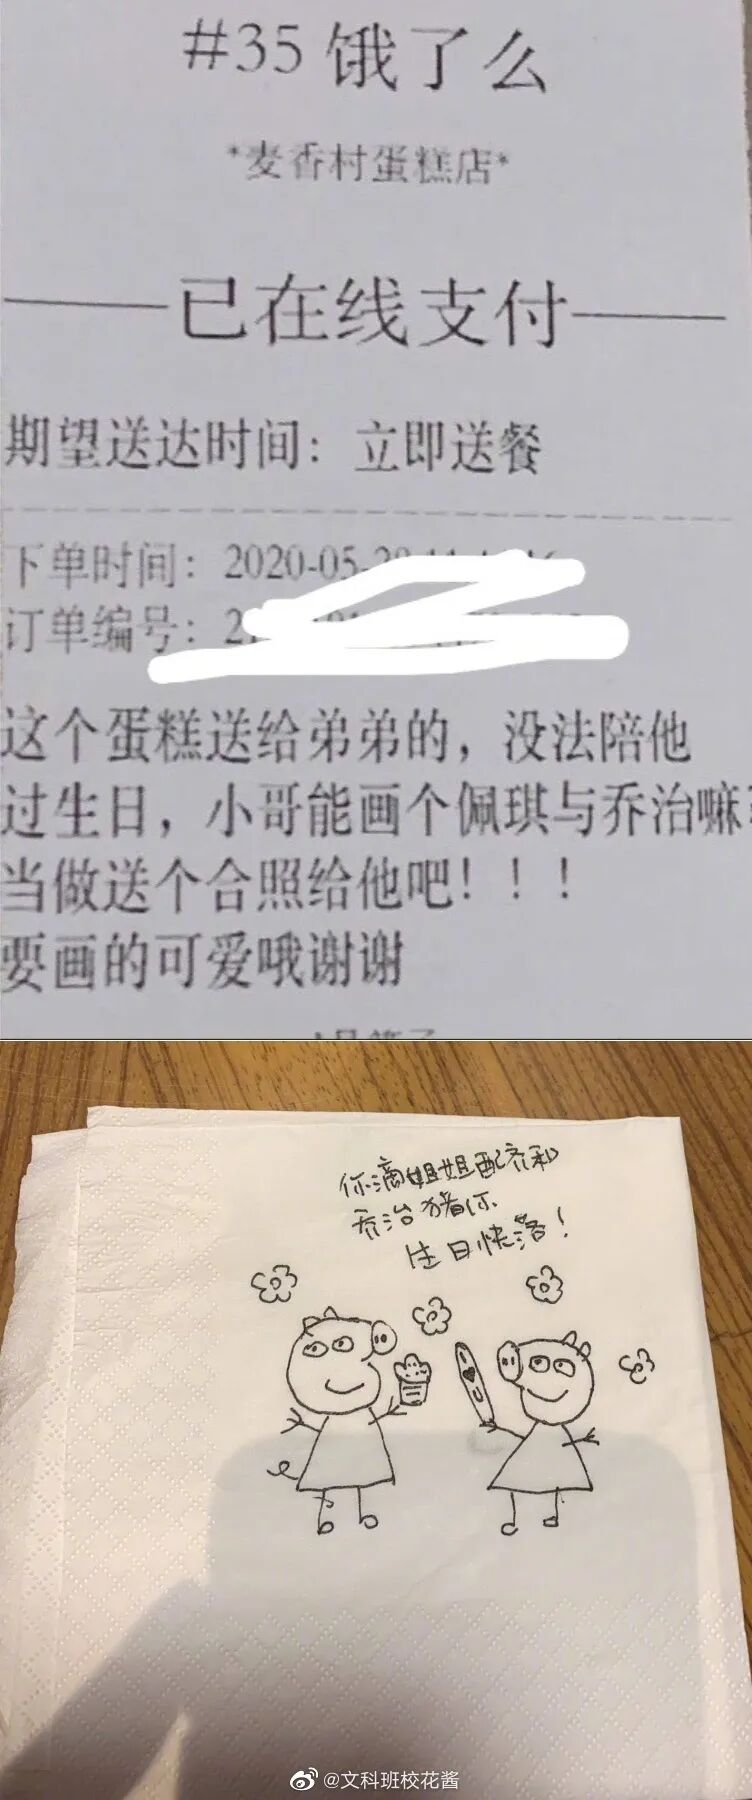 #35 饿了么
*麦香村蛋糕店*
已在线支付
期望送达时间：立即送餐
下单时间：2020-05-2
订单编号：21
这个蛋糕送给弟弟的，没法陪他
过生日，小哥能画个佩琪与乔治嘛
当做送个合照给他吧！！！
要画的可爱哦谢谢
你滴姐姐配齐和
乔治猪你
生日快落！
@文科班校花酱